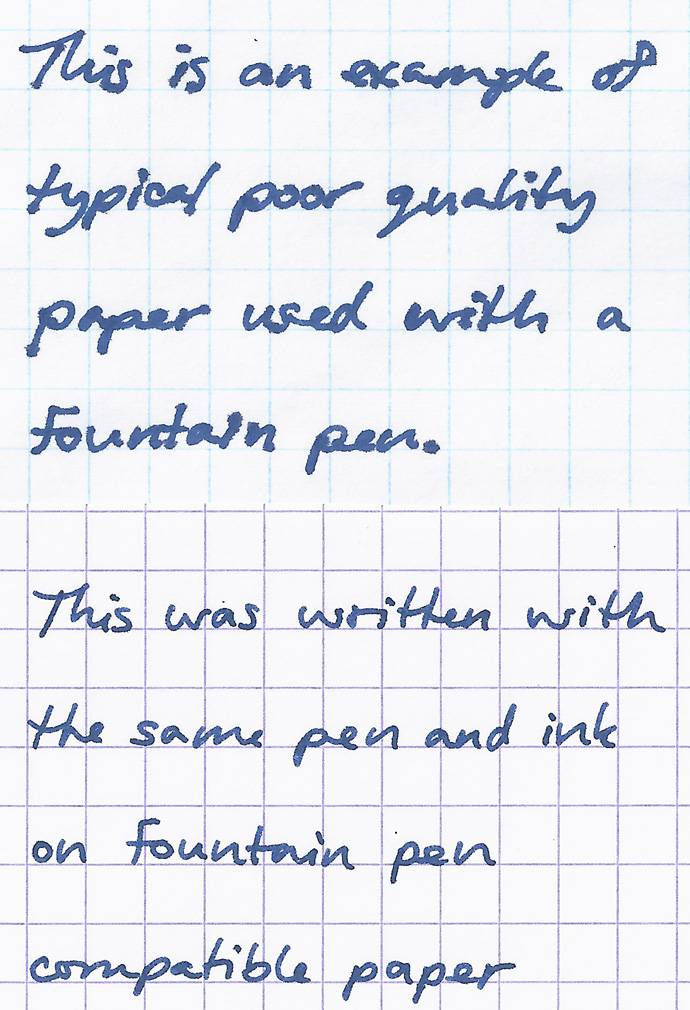 This is an example of
typical poor quality
paper used with a
fountain pen.
This was written with
the same pen and ink
on fountain pen
compatible paper